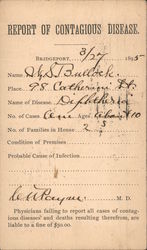 REPORT OF CONTAGIOUS DISEASE.
BRIDGEPORT, 3/27 1895
Name, Bullock.
Place, P.S. Catherine St.
Name of Disease, Diphtheria
No. of Cases, One Aged about 10
No. of Families in House, 2
Condition of Premises
Probable Cause of Infection
M. D.
Physicians failing to report all cases of contag-
ious diseases and deaths resulting therefrom, are
liable to a fine of $50.00.